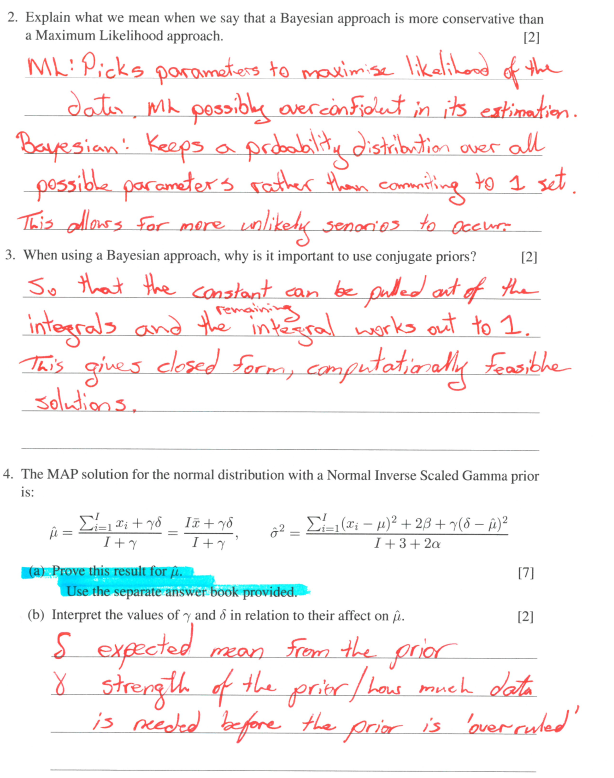 2. Explain what we mean when we say that a Bayesian approach is more conservative than
a Maximum Likelihood approach. [2]
ML: Picks parameters to maximise likelihood of the
data. ML possibly overconfident in its estimation.
Bayesian: Keeps a probability distribution over all
possible parameters rather than commiting to 1 set.
This allows for more unlikely senarios to occur.
3. When using a Bayesian approach, why is it important to use conjugate priors? [2]
So that the constant can be pulled out of the
remaining
integrals and the integral works out to 1.
This gives closed form, computationally feasible
solutions.
4. The MAP solution for the normal distribution with a Normal Inverse Scaled Gamma prior
is:
μ̂ = (∑ᴵᵢ₌₁ xᵢ + γδ) / (I + γ) = (Ix̄ + γδ) / (I + γ), σ̂² = (∑ᴵᵢ₌₁(xᵢ − μ)² + 2β + γ(δ − μ̂)²) / (I + 3 + 2α)
(a) Prove this result for μ̂. [7]
Use the separate answer book provided.
(b) Interpret the values of γ and δ in relation to their affect on μ̂. [2]
δ expected mean from the prior
γ strength of the prior/how much data
is needed before the prior is 'overruled'